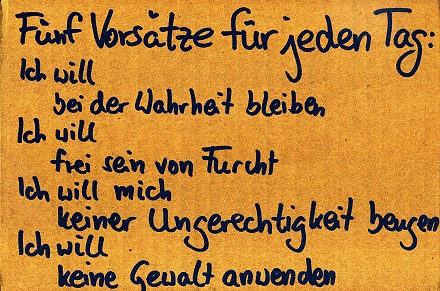 Fünf Vorsätze für jeden Tag:
Ich will
bei der Wahrheit bleiben
Ich will
frei sein von Furcht
Ich will mich
keiner Ungerechtigkeit beugen
Ich will
keine Gewalt anwenden